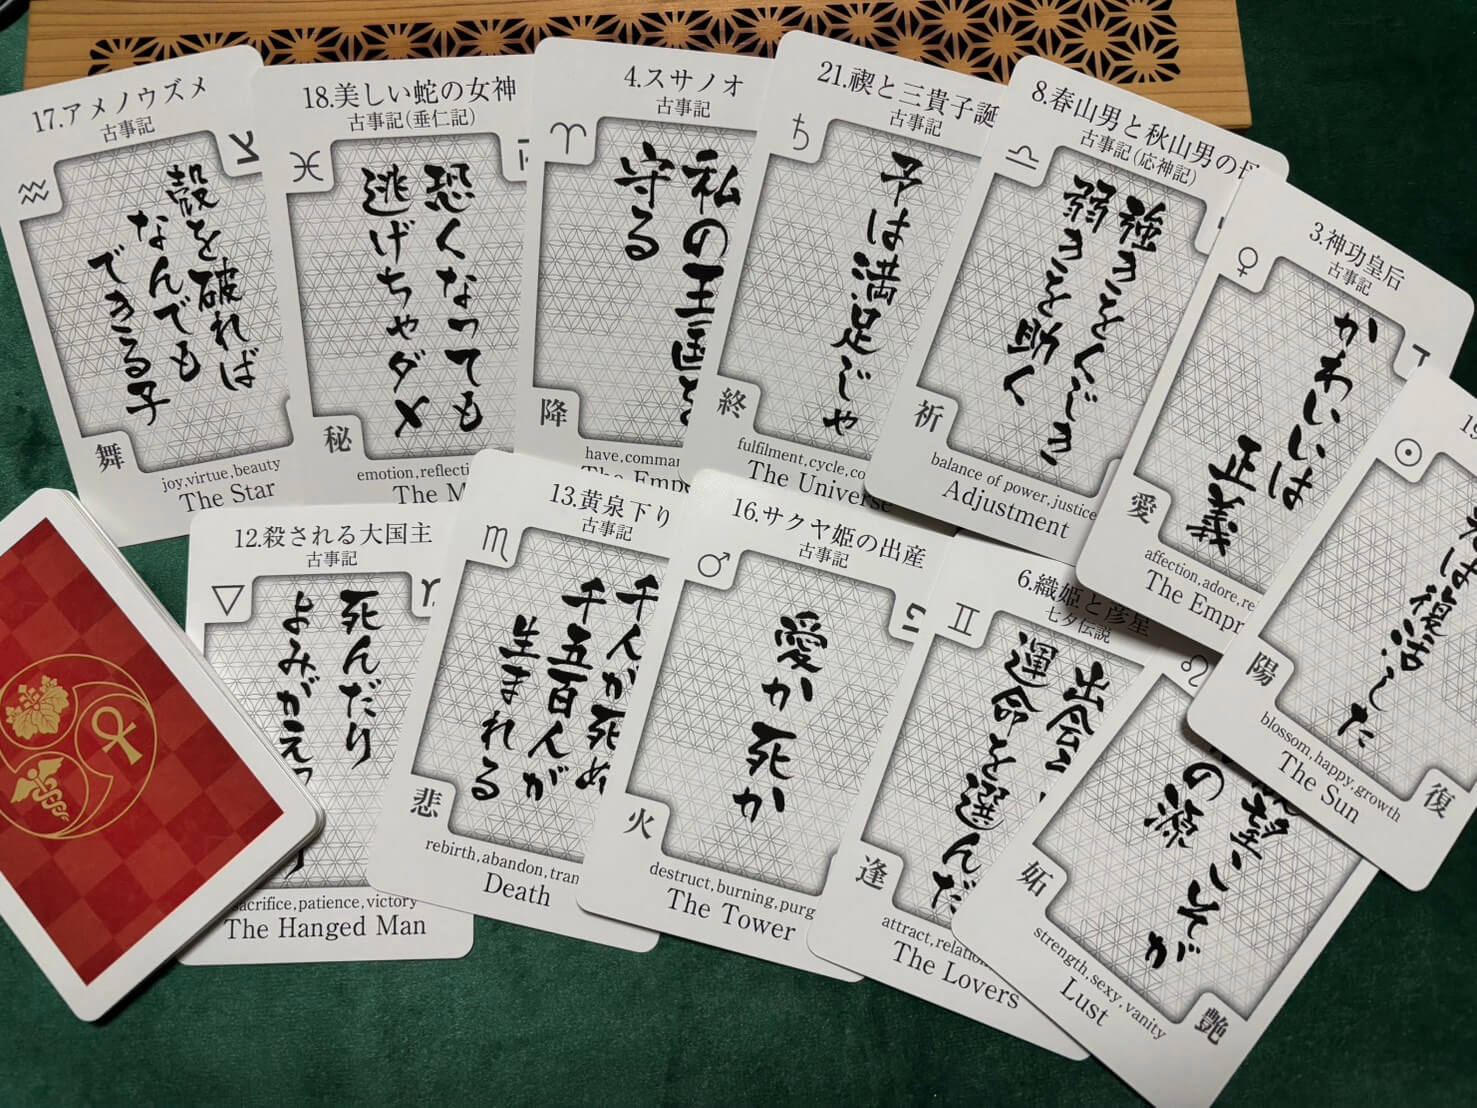 17.アメノウズメ
古事記
♒
殻を破れば
なんでも
できる子
舞
joy,virtue,beauty
The Star
18.美しい蛇の女神
古事記(垂仁記)
♓
恐くなっても
逃げちゃダメ
秘
The
4.スサノオ
古事記
♈
私の王国を
守る
降
The
21.禊と三貴子誕
古事記
♄
予は満足じゃ
終
fulfilment,cycle,
The Universe
8.春山男と秋山男の
古事記(応神記)
♎
強きをくじき
弱きを助く
祈
balance of power,justice
Adjustment
3.神功皇后
古事記
♀
かわいいは
正義
愛
affection,adore,
The
☉
復活した
陽
復
blossom,happy,growth
The Sun
12.殺される大国主
古事記
▽
死んだり
sacrifice,patience,victory
The Hanged Man
13.黄泉下り
古事記
♏
千人が死ぬ
千五百人が
生まれる
悲
rebirth,abandon,
Death
16.サクヤ姫の出産
古事記
♂
愛か死か
火
destruct,burning,
The Tower
6.織姫と彦星
七夕伝説
♊
運命を選んだ
逢
attract,
The Lovers
♌
の源
妬
艶
strength,sexy,vanity
Lust